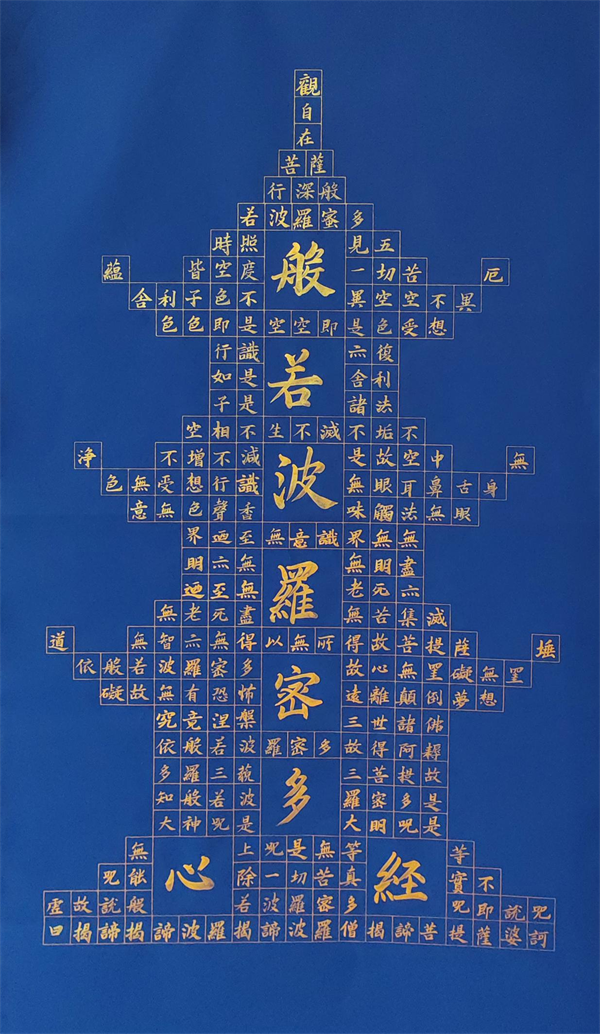 觀
自
在
菩薩
行深般
若波羅蜜多
時照 見五
蘊 皆空度 一切苦 厄
舍利子色不 異空空不異
色色即是空空即是色受想
行識 亦復
如是 舍利
子是 諸法
空相不生不滅不垢不
浄 不增不減 是故空中 無
色無受想行識 無眼耳鼻舌身
意無色聲香 味觸法無眼
界廼至無意識界無無
明亦無 無明盡
廼至無 老死亦
無老死盡 無苦集滅
道 無智亦無得以無所得故菩提薩 埵
依般若波羅密多 故心無罣礙無罣
礙故無有恐怖 遠離顛倒夢想
究竟涅槃 三世諸佛
依般若波羅密多故得阿耨
多羅三藐 三菩提故
知般若波 羅密多是
大神咒是 大明咒是
無 上咒是無等 等
咒能 除一切苦真 實不
虛故說般 若波羅密多 咒即說咒
曰揭諦揭諦波羅揭諦波羅僧揭諦菩提薩婆訶
般
若
波
羅
密
多
心 經